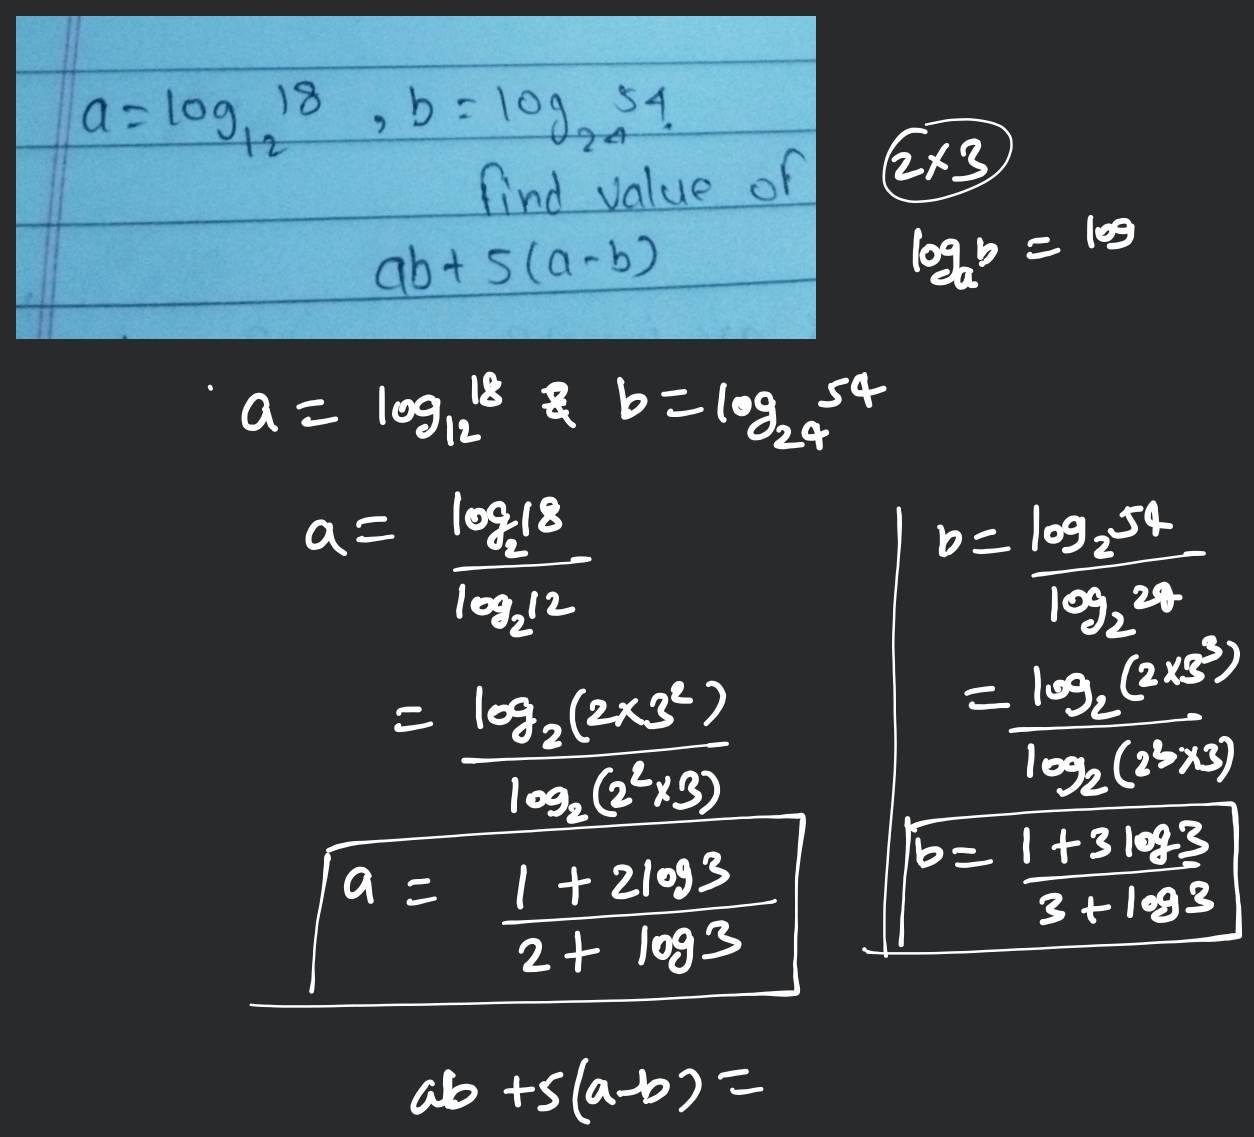 a = log₁₂ 18 , b = log₂₄ 54.
find value of
ab + 5(a-b)
2×3
logₐ b = log
a = log₁₂ 18 & b = log₂₄ 54
a = log₂ 18 / log₂ 12
= log₂ (2×3²) / log₂ (2²×3)
a = 1 + 2log3 / 2 + log3
b = log₂ 54 / log₂ 24
= log₂ (2×3³) / log₂ (2³×3)
b = 1 + 3log3 / 3 + log3
ab + 5(a-b) =